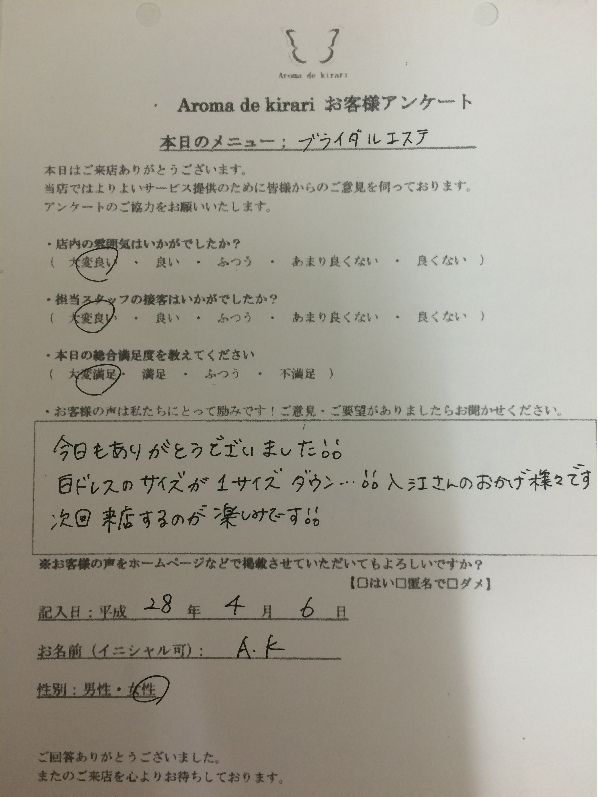 Aroma de kirari
Aroma de kirari お客様アンケート
本日のメニュー; ブライダルエステ
本日はご来店ありがとうございます。
当店ではよりよいサービス提供のために皆様からのご意見を伺っております。
アンケートのご協力をお願いいたします。
・店内の雰囲気はいかがでしたか?
( 大変良い ・ 良い ・ ふつう ・ あまり良くない ・ 良くない )
・担当スタッフの接客はいかがでしたか?
( 大変良い ・ 良い ・ ふつう ・ あまり良くない ・ 良くない )
・本日の総合満足度を教えてください
( 大変満足・ 満足 ・ ふつう ・ 不満足 )
・お客様の声は私たちにとって励みです!ご意見・ご要望がありましたらお聞かせください。
今日もありがとうございました!!
白ドレスのサイズが1サイズ ダウン…!! 入江さんのおかげ様々です
次回 来店するのが 楽しみです!!
※お客様の声をホームページなどで掲載させていただいてもよろしいですか?
【□はい□匿名で□ダメ】
記入日:平成 28 年 4 月 6 日
お名前(イニシャル可): A.K
性別:男性・女性
ご回答ありがとうございました。
またのご来店を心よりお待ちしております。